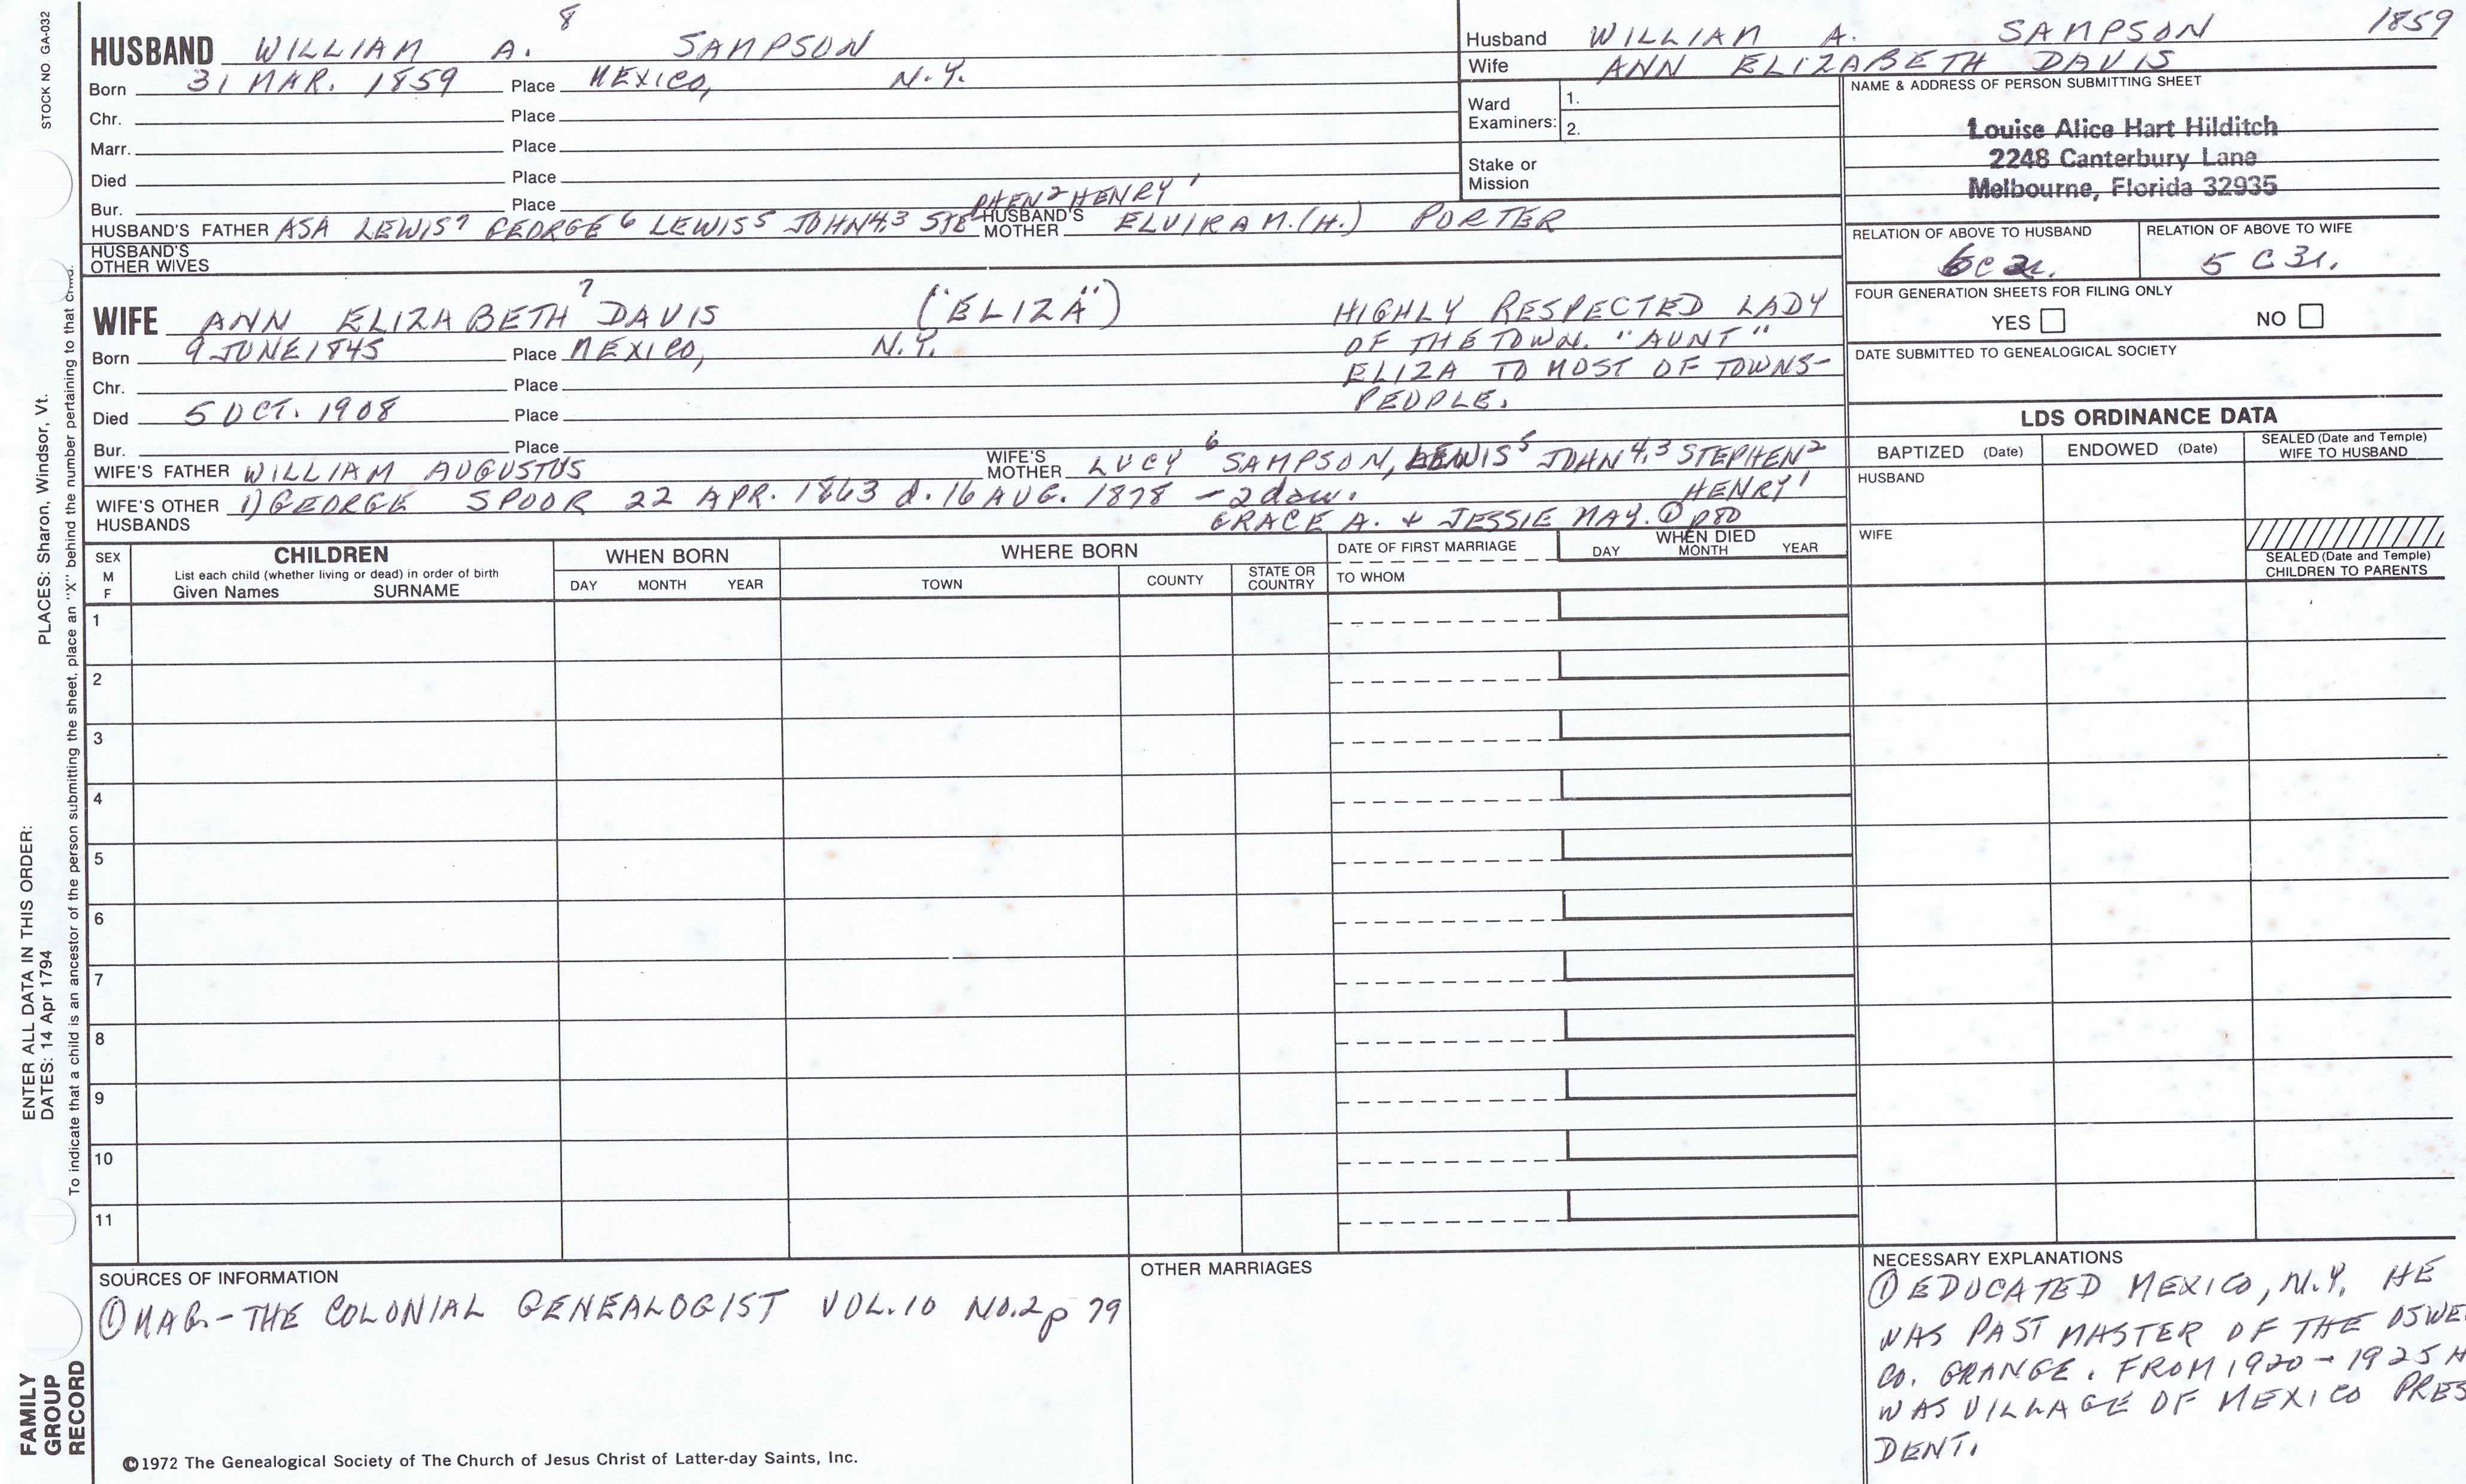 STOCK NO GA-032
PLACES: Sharon, Windsor, Vt.
ENTER ALL DATA IN THIS ORDER:
DATES: 14 Apr 1794
To indicate that a child is an ancestor of the person submitting the sheet, place an "X" behind the number pertaining to that child.
FAMILY
GROUP
RECORD
HUSBAND WILLIAM A. 8 SAMPSON
Born 31 MAR. 1859 Place MEXICO, N.Y.
Chr. Place
Marr. Place
Died Place
Bur. Place
HUSBAND'S FATHER ASA LEWIS7 GEORGE6 LEWIS5 JOHN4,3 STEPHEN2 HENRY1 HUSBAND'S MOTHER ELVIRA M.(H.) PORTER
HUSBAND'S
OTHER WIVES
WIFE ANN ELIZABETH 7 DAVIS ("ELIZA")
HIGHLY RESPECTED LADY
OF THE TOWN. "AUNT"
ELIZA TO MOST OF TOWNS-
PEOPLE.
Born 9 JUNE 1845 Place MEXICO, N.Y.
Chr. Place
Died 5 OCT. 1908 Place
Bur. Place
WIFE'S FATHER WILLIAM AUGUSTUS WIFE'S MOTHER LUCY6 SAMPSON, LEWIS5 JOHN4,3 STEPHEN2
HENRY1
WIFE'S OTHER HUSBANDS 1) GEORGE SPOOR 22 APR. 1863 d. 16 AUG. 1878 - 2 dau.
GRACE A. & JESSIE MAY. ① p80
Husband WILLIAM A. SAMPSON 1859
Wife ANN ELIZABETH DAVIS
Ward
Examiners:
1.
2.
Stake or
Mission
NAME & ADDRESS OF PERSON SUBMITTING SHEET
Louise Alice Hart Hilditch
2248 Canterbury Lane
Melbourne, Florida 32935
RELATION OF ABOVE TO HUSBAND RELATION OF ABOVE TO WIFE
6c2r. 5 C 3r.
FOUR GENERATION SHEETS FOR FILING ONLY
YES NO
DATE SUBMITTED TO GENEALOGICAL SOCIETY
LDS ORDINANCE DATA
BAPTIZED (Date) ENDOWED (Date) SEALED (Date and Temple) WIFE TO HUSBAND
HUSBAND
WIFE
SEALED (Date and Temple)
CHILDREN TO PARENTS
SEX
M
F
CHILDREN
List each child (whether living or dead) in order of birth
Given Names SURNAME
WHEN BORN
DAY MONTH YEAR
WHERE BORN
TOWN COUNTY STATE OR COUNTRY
DATE OF FIRST MARRIAGE
TO WHOM
WHEN DIED
DAY MONTH YEAR
1
2
3
4
5
6
7
8
9
10
11
SOURCES OF INFORMATION
① MAG.-THE COLONIAL GENEALOGIST VOL.10 NO.2 p 79
OTHER MARRIAGES
NECESSARY EXPLANATIONS
① EDUCATED MEXICO, N.Y. HE
WAS PAST MASTER OF THE OSWE
CO. GRANGE. FROM 1920-1925 H
WAS VILLAGE OF MEXICO PRES
DENT.
©1972 The Genealogical Society of The Church of Jesus Christ of Latter-day Saints, Inc.